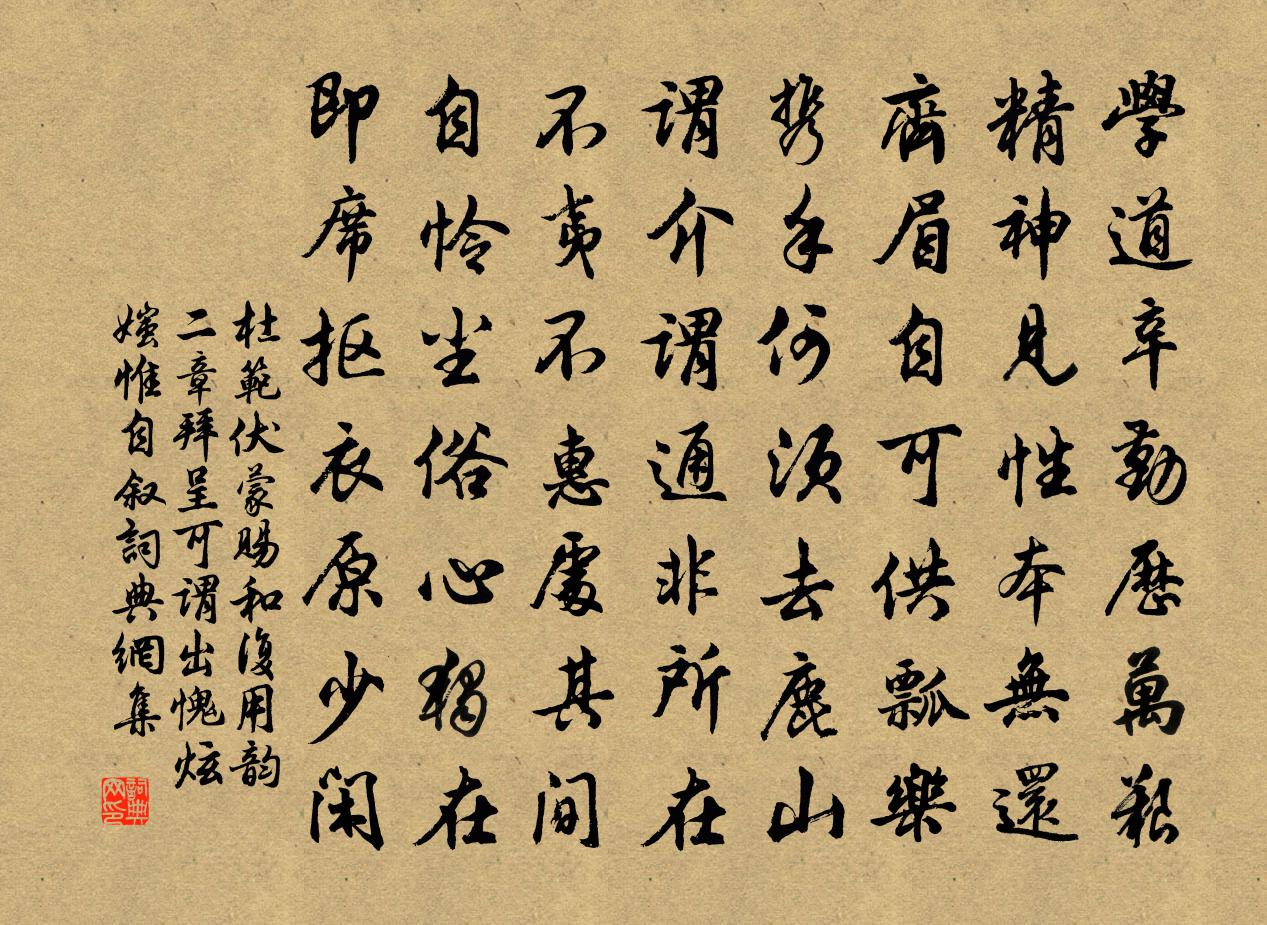 學道辛勤歷萬艱
精神見性本無還
齊眉自可供瓢樂
携手何須去鹿山
謂介謂通非所在
不夷不惠處其間
自憐塵俗心猶在
即席抠衣原少閑
杜範伏蒙賜和復用韵
二章拜呈可謂出愧炫
媸惟自叙詞典網集
詞典
网印